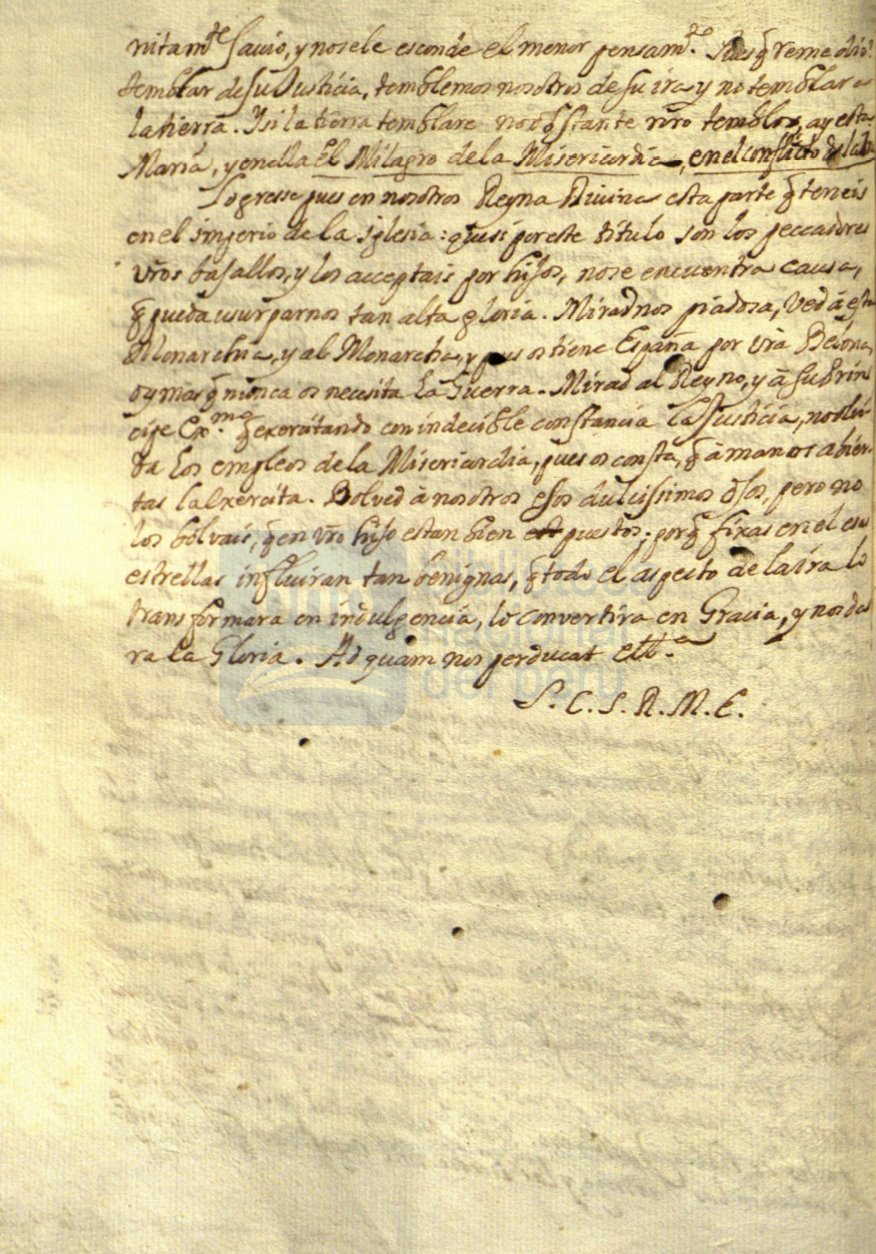 nitam.te Savio, y no se le esconde el menor pensam.to. Pues q̃ teme
temblar de su Justicia, temblemos nosotros de su ira y no temblara
la tierra. Y si la tierra temblare no obstante ñro temblor, ay esta
Maria, y en ella el Milagro de la Misericordia, en el conflicto de la
Logresse pues en nosotros Reyna Divina esta parte q̃ teneis
en el imperio de la Iglesia: que si por este titulo son los peccadores
vr̃os basallos, y los acceptais por hijos, no se encuentra causa,
q̃ pueda usurparnos tan alta gloria. Miradnos piadosa, Ved â esta
Monarchia, y al Monarcha, y pues os tiene España por vrã Belona,
oy mas q̃ nunca os necesita la Guerra. Mirad al Reyno, y â su Prin
cipe Ex.mo q̃ exercitando con indecible constancia la Justicia, no olvi
da los empleos de la Misericordia, pues os consta, q̃ â manos abier
tas la exercita. Bolved â nosotros esos dulcissimos ojos, pero no
los bolvais, q̃ en vr̃o hijo estan bien est puestos; porq̃ fixas en el esas
estrellas influiran tan benignas, q̃ todo el aspecto de la ira lo
transformara en indulgencia, lo convertira en Gracia, y nos da
ra la Gloria. Ad quam nos perducat ettt.a
S. C. S. R. M. E.
biblioteca
nacional
del perú